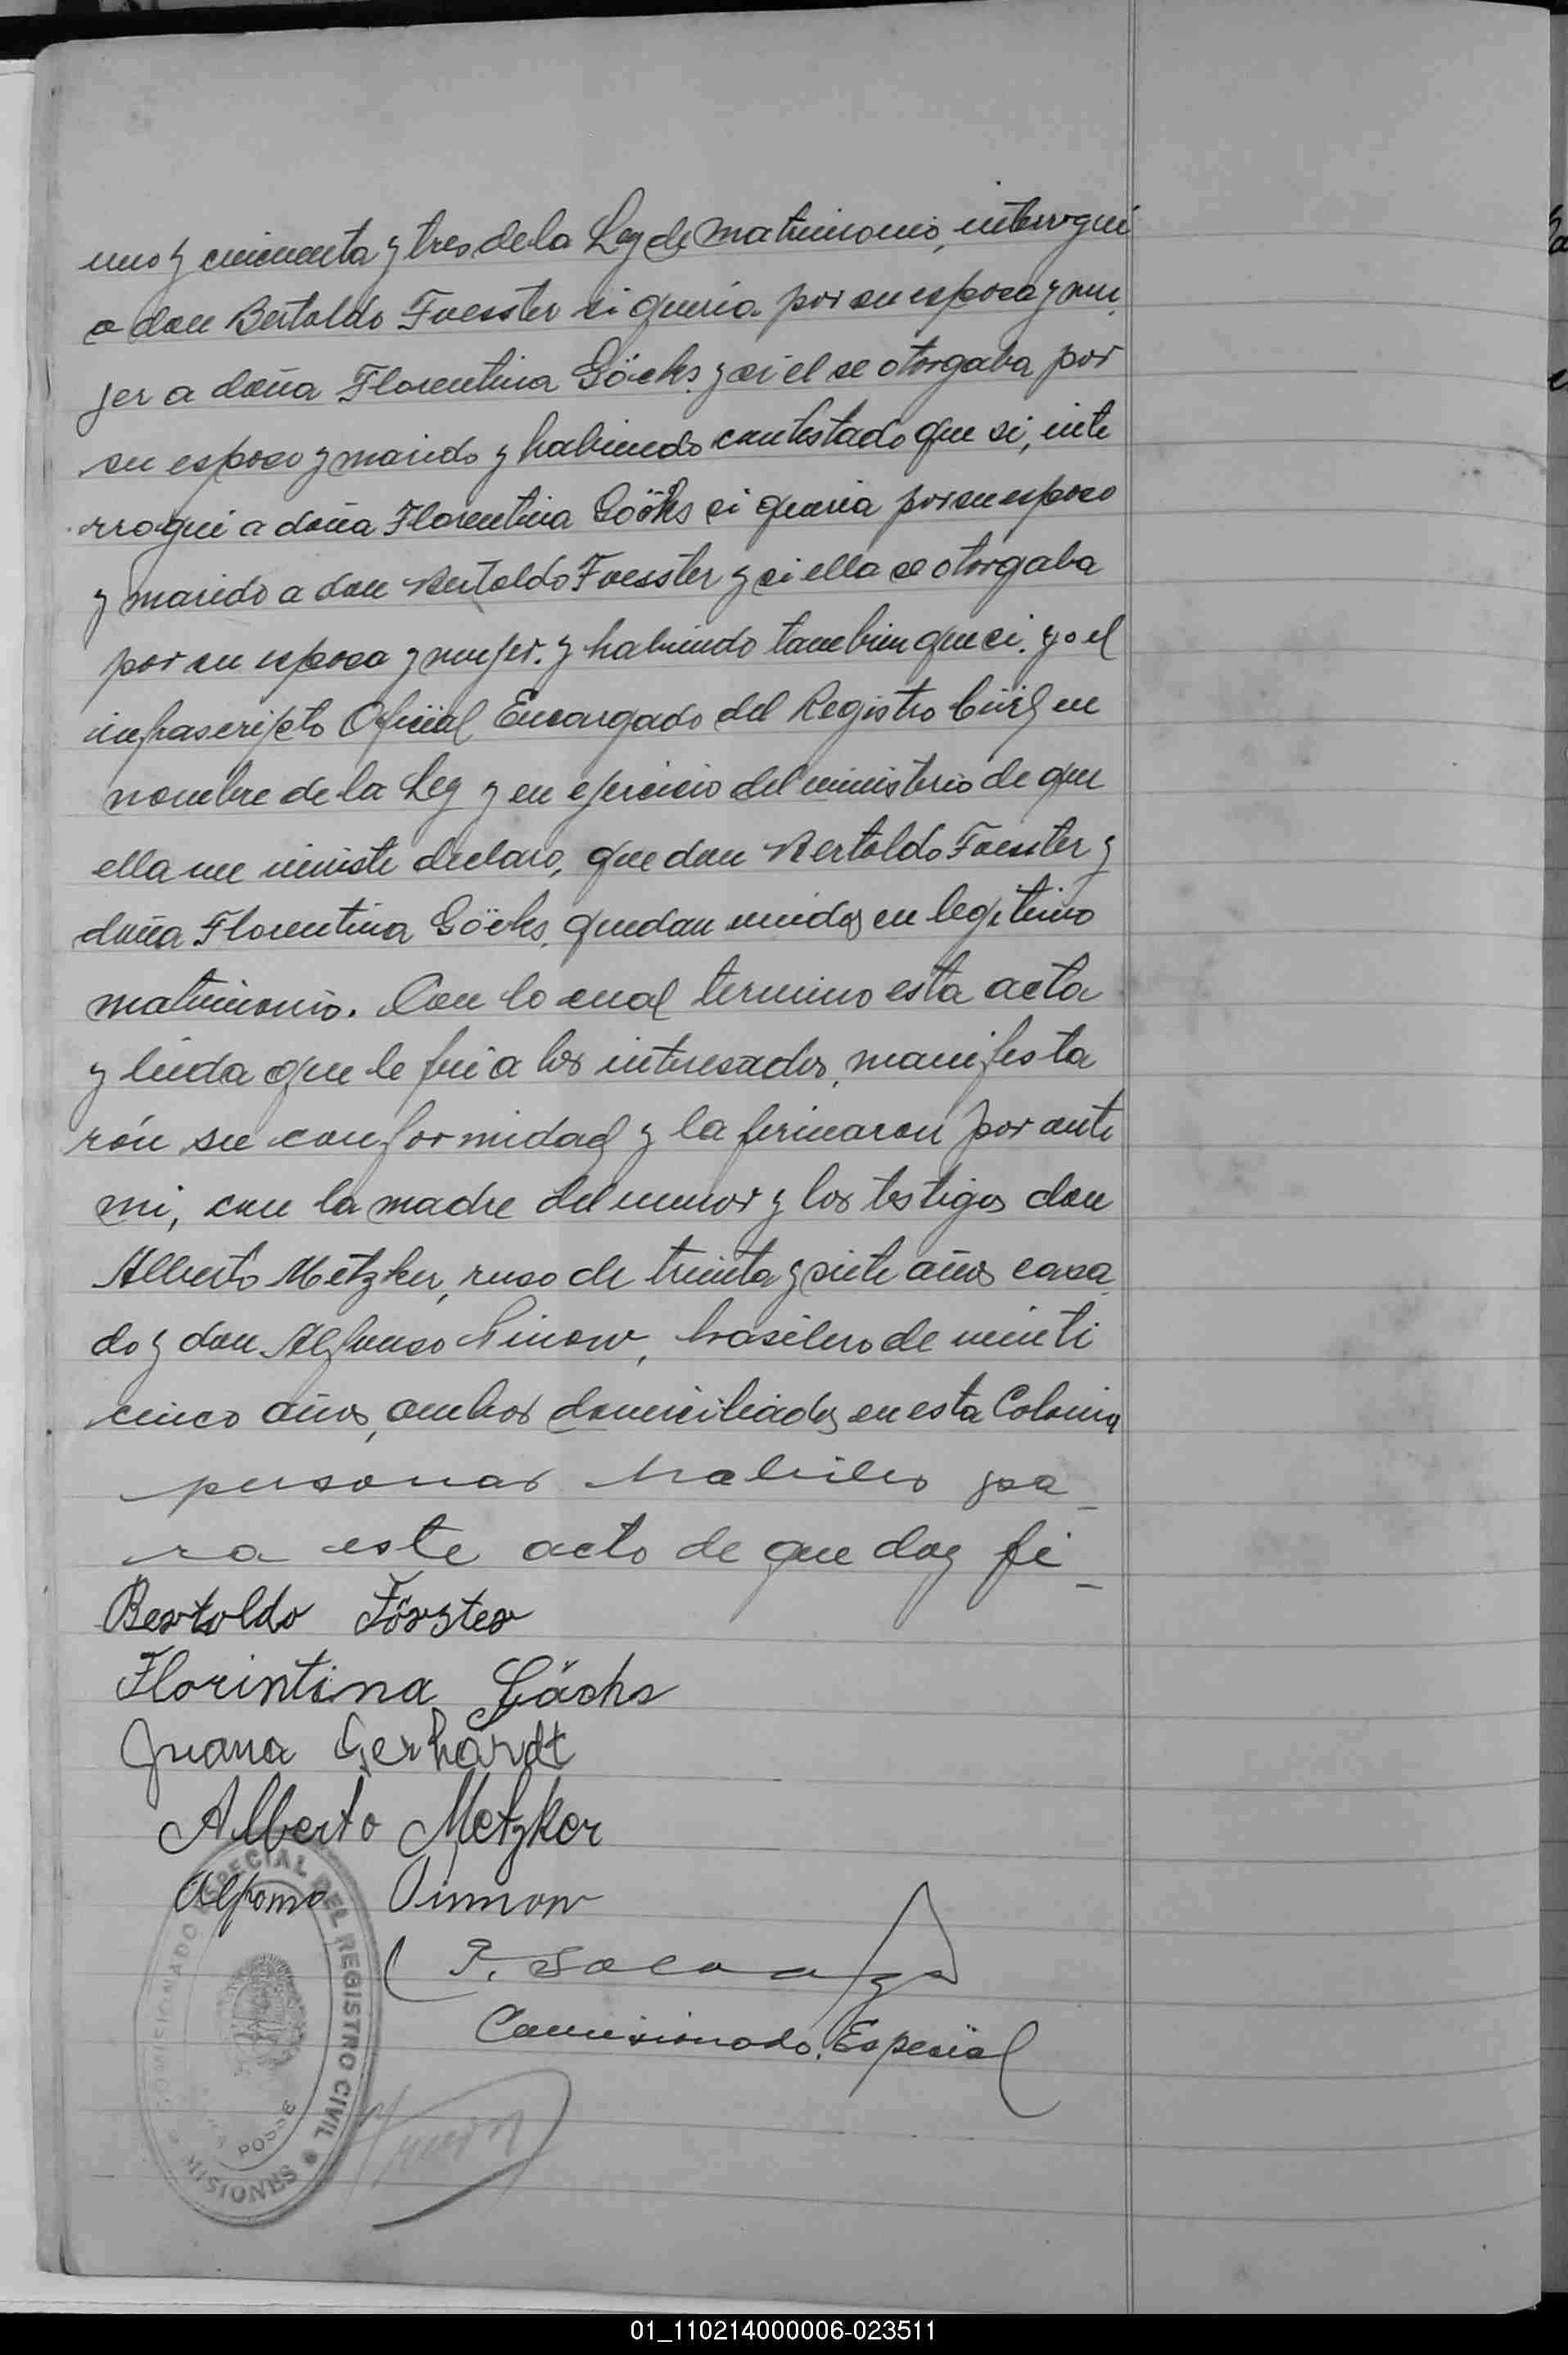 uno y cincuenta y tres de la Ley de Matrimonio, interrogué
a don Bertoldo Foesster si queria por su esposa y mu
jer a doña Florentina Göcks y si el se otorgaba por
su esposo y marido y habiendo contestado que si, inte
rrogué a doña Florentina Göcks si queria por su esposo
y marido a don Bertoldo Foesster y si ella se otorgaba
por su esposa y mujer. y habiendo tambien que si. yo el
infrascripto Oficial Encargado del Registro Civil en
nombre de la Ley y en ejercicio del ministerio de que
ella me inviste declaro, que don Bertoldo Foesster y
doña Florentina Göcks, quedan unidos en legitimo
matrimonio. Con lo cual termino esta acta
y leida que le fué a los interesados, manifesta
rón su conformidad y la firmaron por ante
mi, con la madre del menor y los testigos don
Alberto Metzker, ruso de treinta y siete años casa
do y don Alfonso Ninow, brasilero de veinti
cinco años, ambos domiciliados en esta Colonia
personas habiles pa_
ra este acto de que doy fé_
Bertoldo Förster
Florintina Gächs
Juana Gerhardt
Alberto Metzker
Alfonso
Comisionado Especial
COMISIONADO ESPECIAL DEL REGISTRO CIVIL
POSSE
MISIONES
01_110214000006-023511